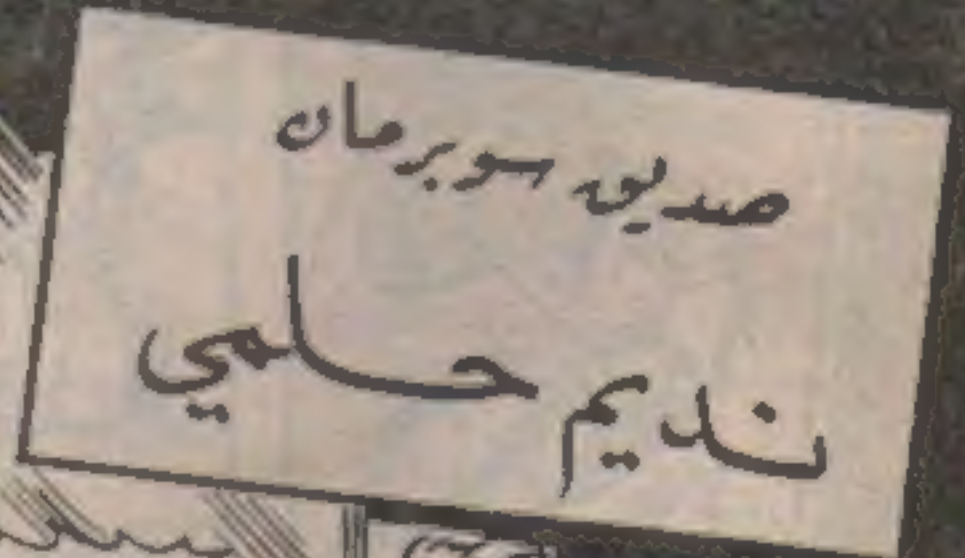 صديق سوبرمان
نديم حلمي